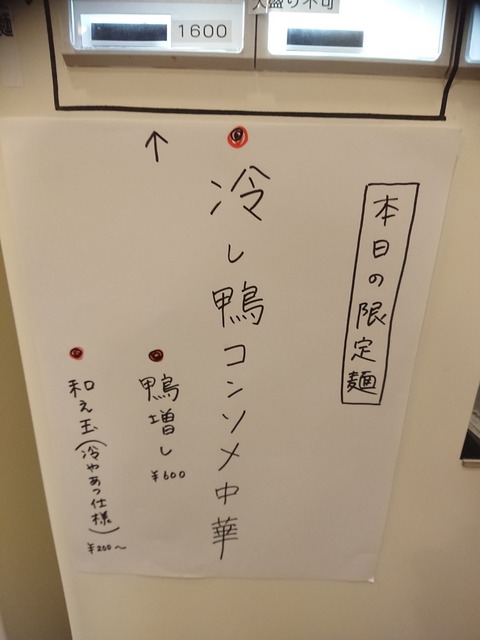 1600
大盛り不可
本日の限定麺
冷し鴨コンソメ中華
鴨増し
¥600
和え玉(冷やあつ仕様)
¥200〜